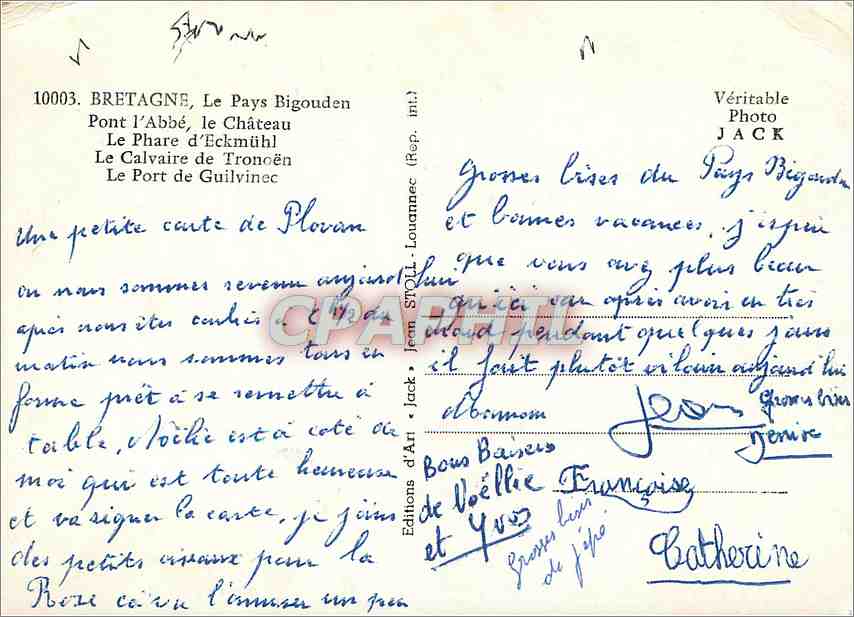 10003. BRETAGNE, Le Pays Bigouden
Pont l'Abbé, le Château
Le Phare d'Eckmühl
Le Calvaire de Tronoën
Le Port de Guilvinec
Véritable
Photo
JACK
Editions d'Art « Jack » Jean STOLL - Louannec (Rep. int.)
CPAPHIL
Une petite carte de Plovan
ou nous sommes revenu aujourd hui
après nous êtes couchés à 6 h 1/2 du
matin nous sommes tous en
forme prêt à se remettre à
table, Noëlie est à coté de
moi qui est toute heureuse
et va signer la carte, je joins
des petits oiseaux pour la
Rose ça va l'amuser un peu
Grosses bises du Pays Bigouden
et bonnes vacances, j'espère
que vous avez plus beau
qu'ici car après avoir eu très
chaud pendant quelques jours
il fait plutôt vilain aujourd hui
Jean
Grosses bises
Denise
Bons Baisers
de Noëllie
et Yves
Françoise
Grosses bises
de pépé
Catherine